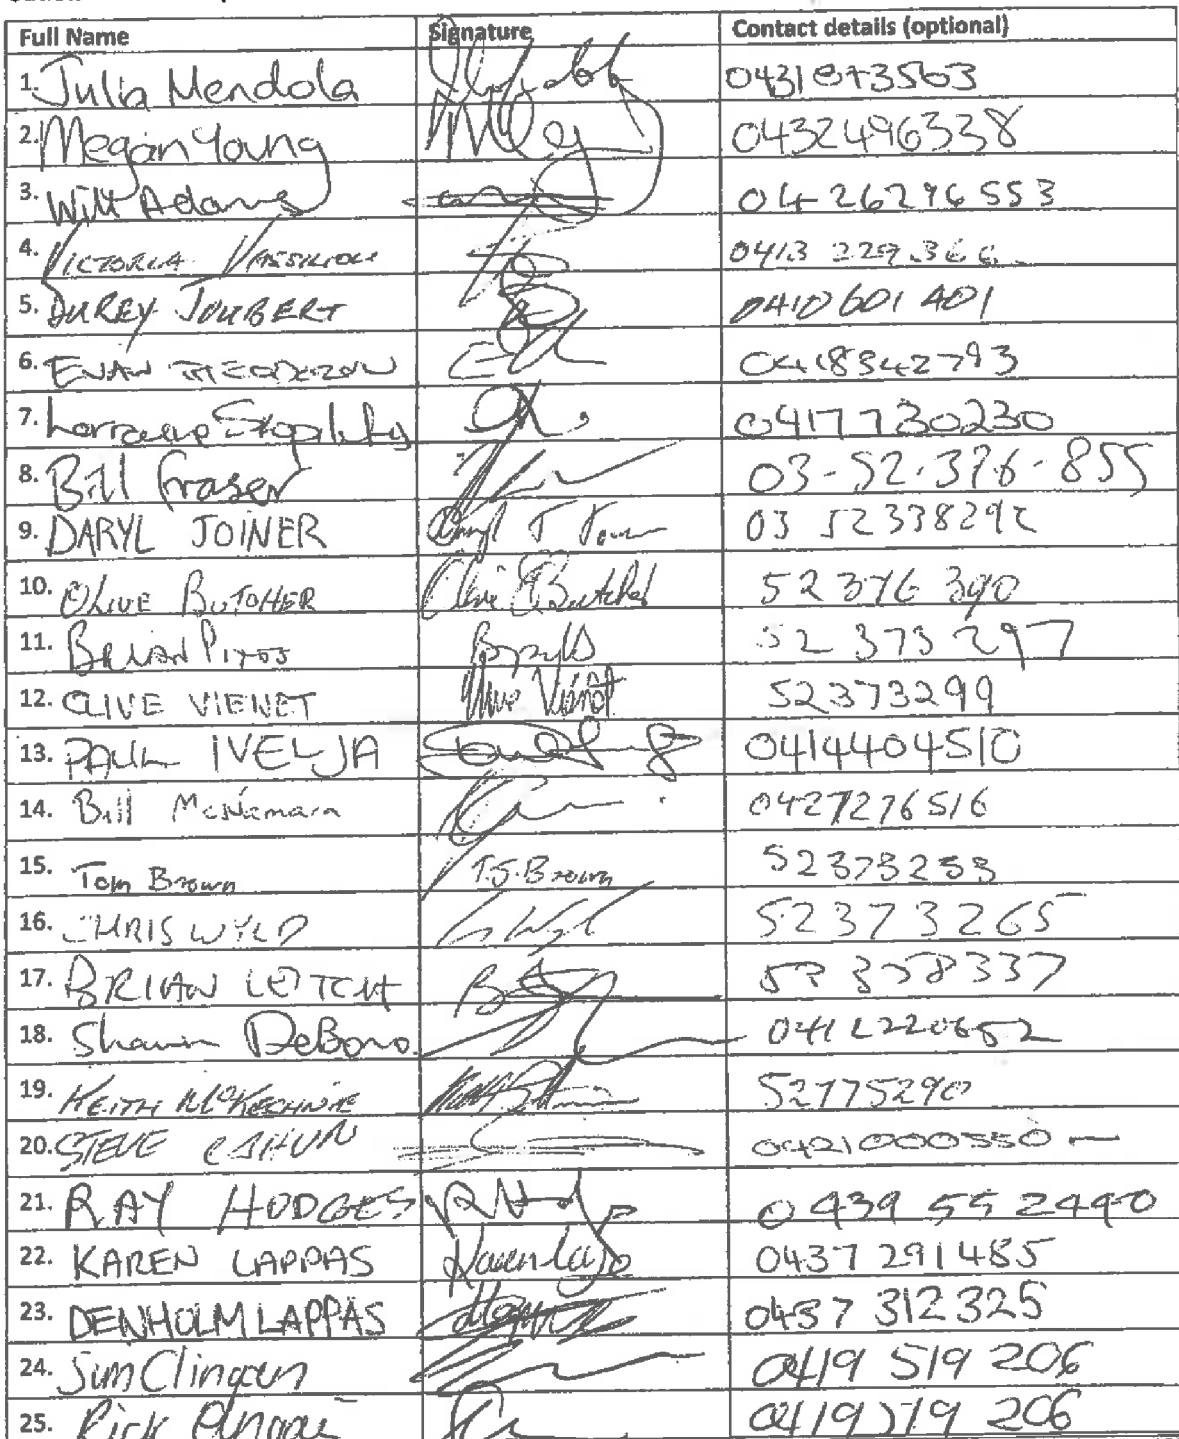 Full Name Signature Contact details (optional)
1. Julia Mendola 0431073503
2. Megan Young 0432496338
3. Will Adams 0426296553
4. VICTORIA VASSILIOU 0413 229.366
5. JOUBERT 0410 601 401
6. EVAN 0418342793
7. Lorraine 0417730230
8. Bill Fraser 03-52-376-855
9. DARYL JOINER Daryl T 03 52338292
10. OLIVE BUTCHER Olive E Butcher 52 376 390
11. BRIAN PITTS 52 373 297
12. CLIVE VIENET Clive Vienet 52373299
13. PAUL IVELJA 0414404510
14. Bill McNamara 0427276516
15. Tom Brown T.J. Brown 52373253
16. CHRIS WYLD 52373265
17. BRIAN LEITCH 358337
18. Shaun DeBono
19. KEITH McKECHNIE 52775290
20. STEVE CAHUN 0421000550
21. RAY HODGES 0439 552440
22. KAREN LAPPAS Karen 0437 291485
23. DENHOLM LAPPAS 0437 312325
24. Clingan 0419 519 206
25. Rick 206